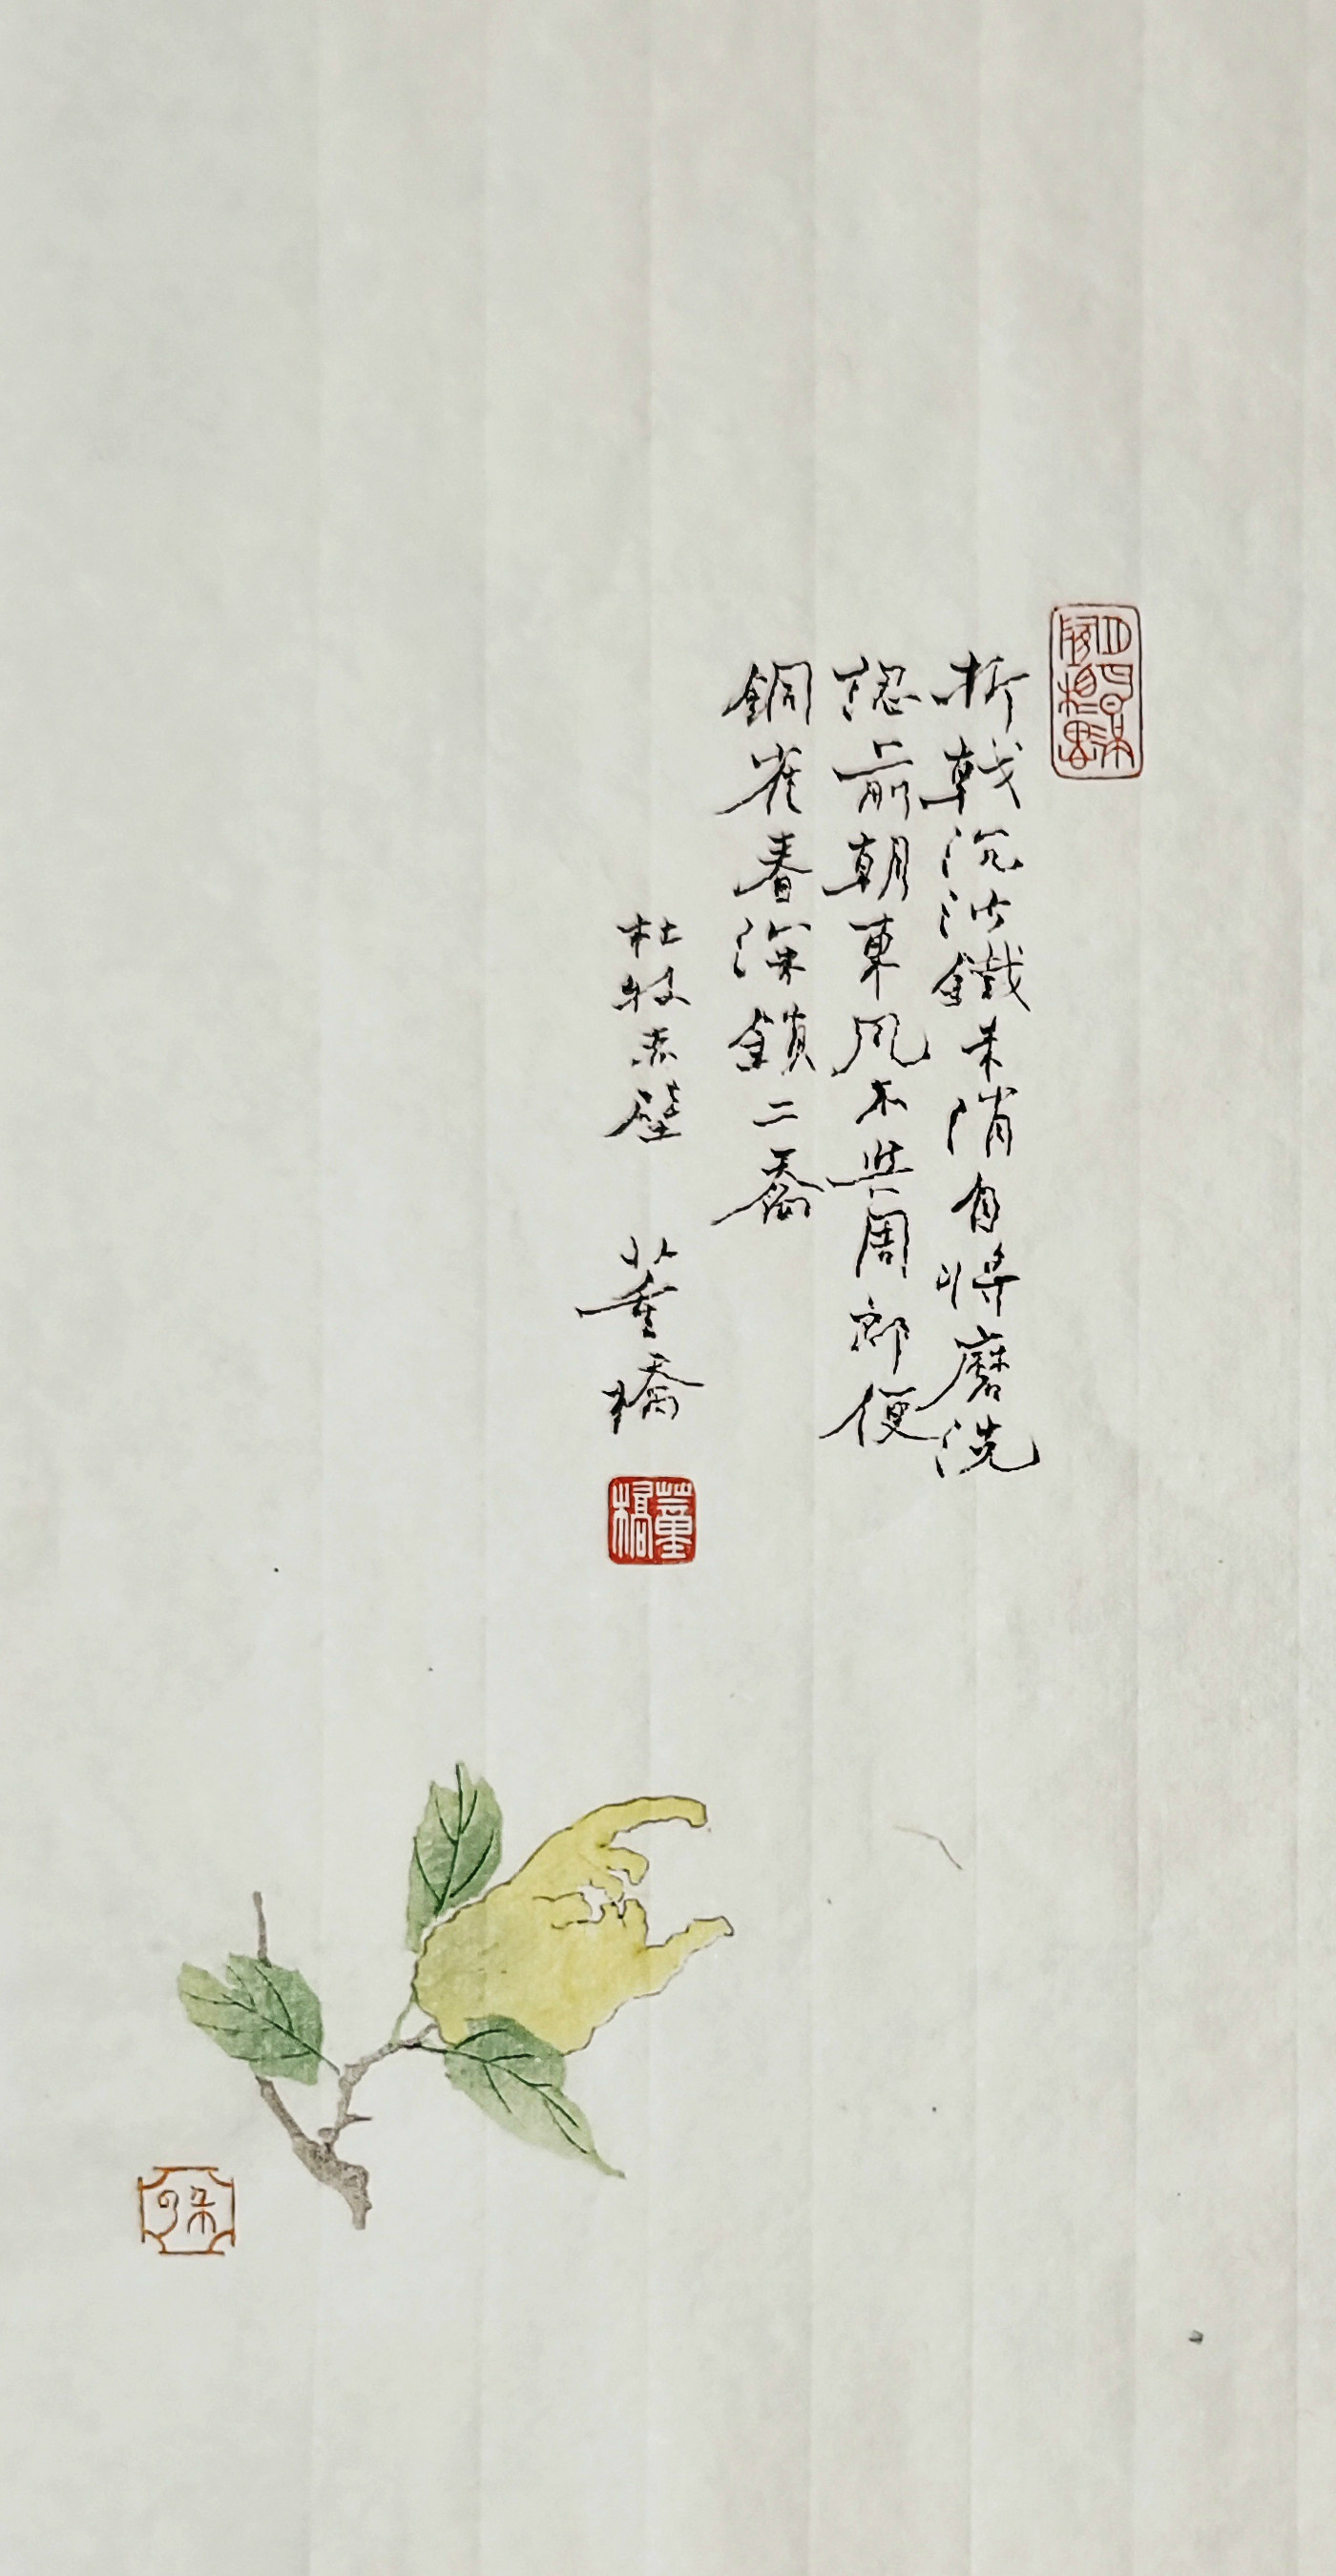 折戟沉沙鐵未消自將磨洗
認前朝東風不與周郎便
銅雀春深鎖二喬
杜牧赤壁 董橋
董橋